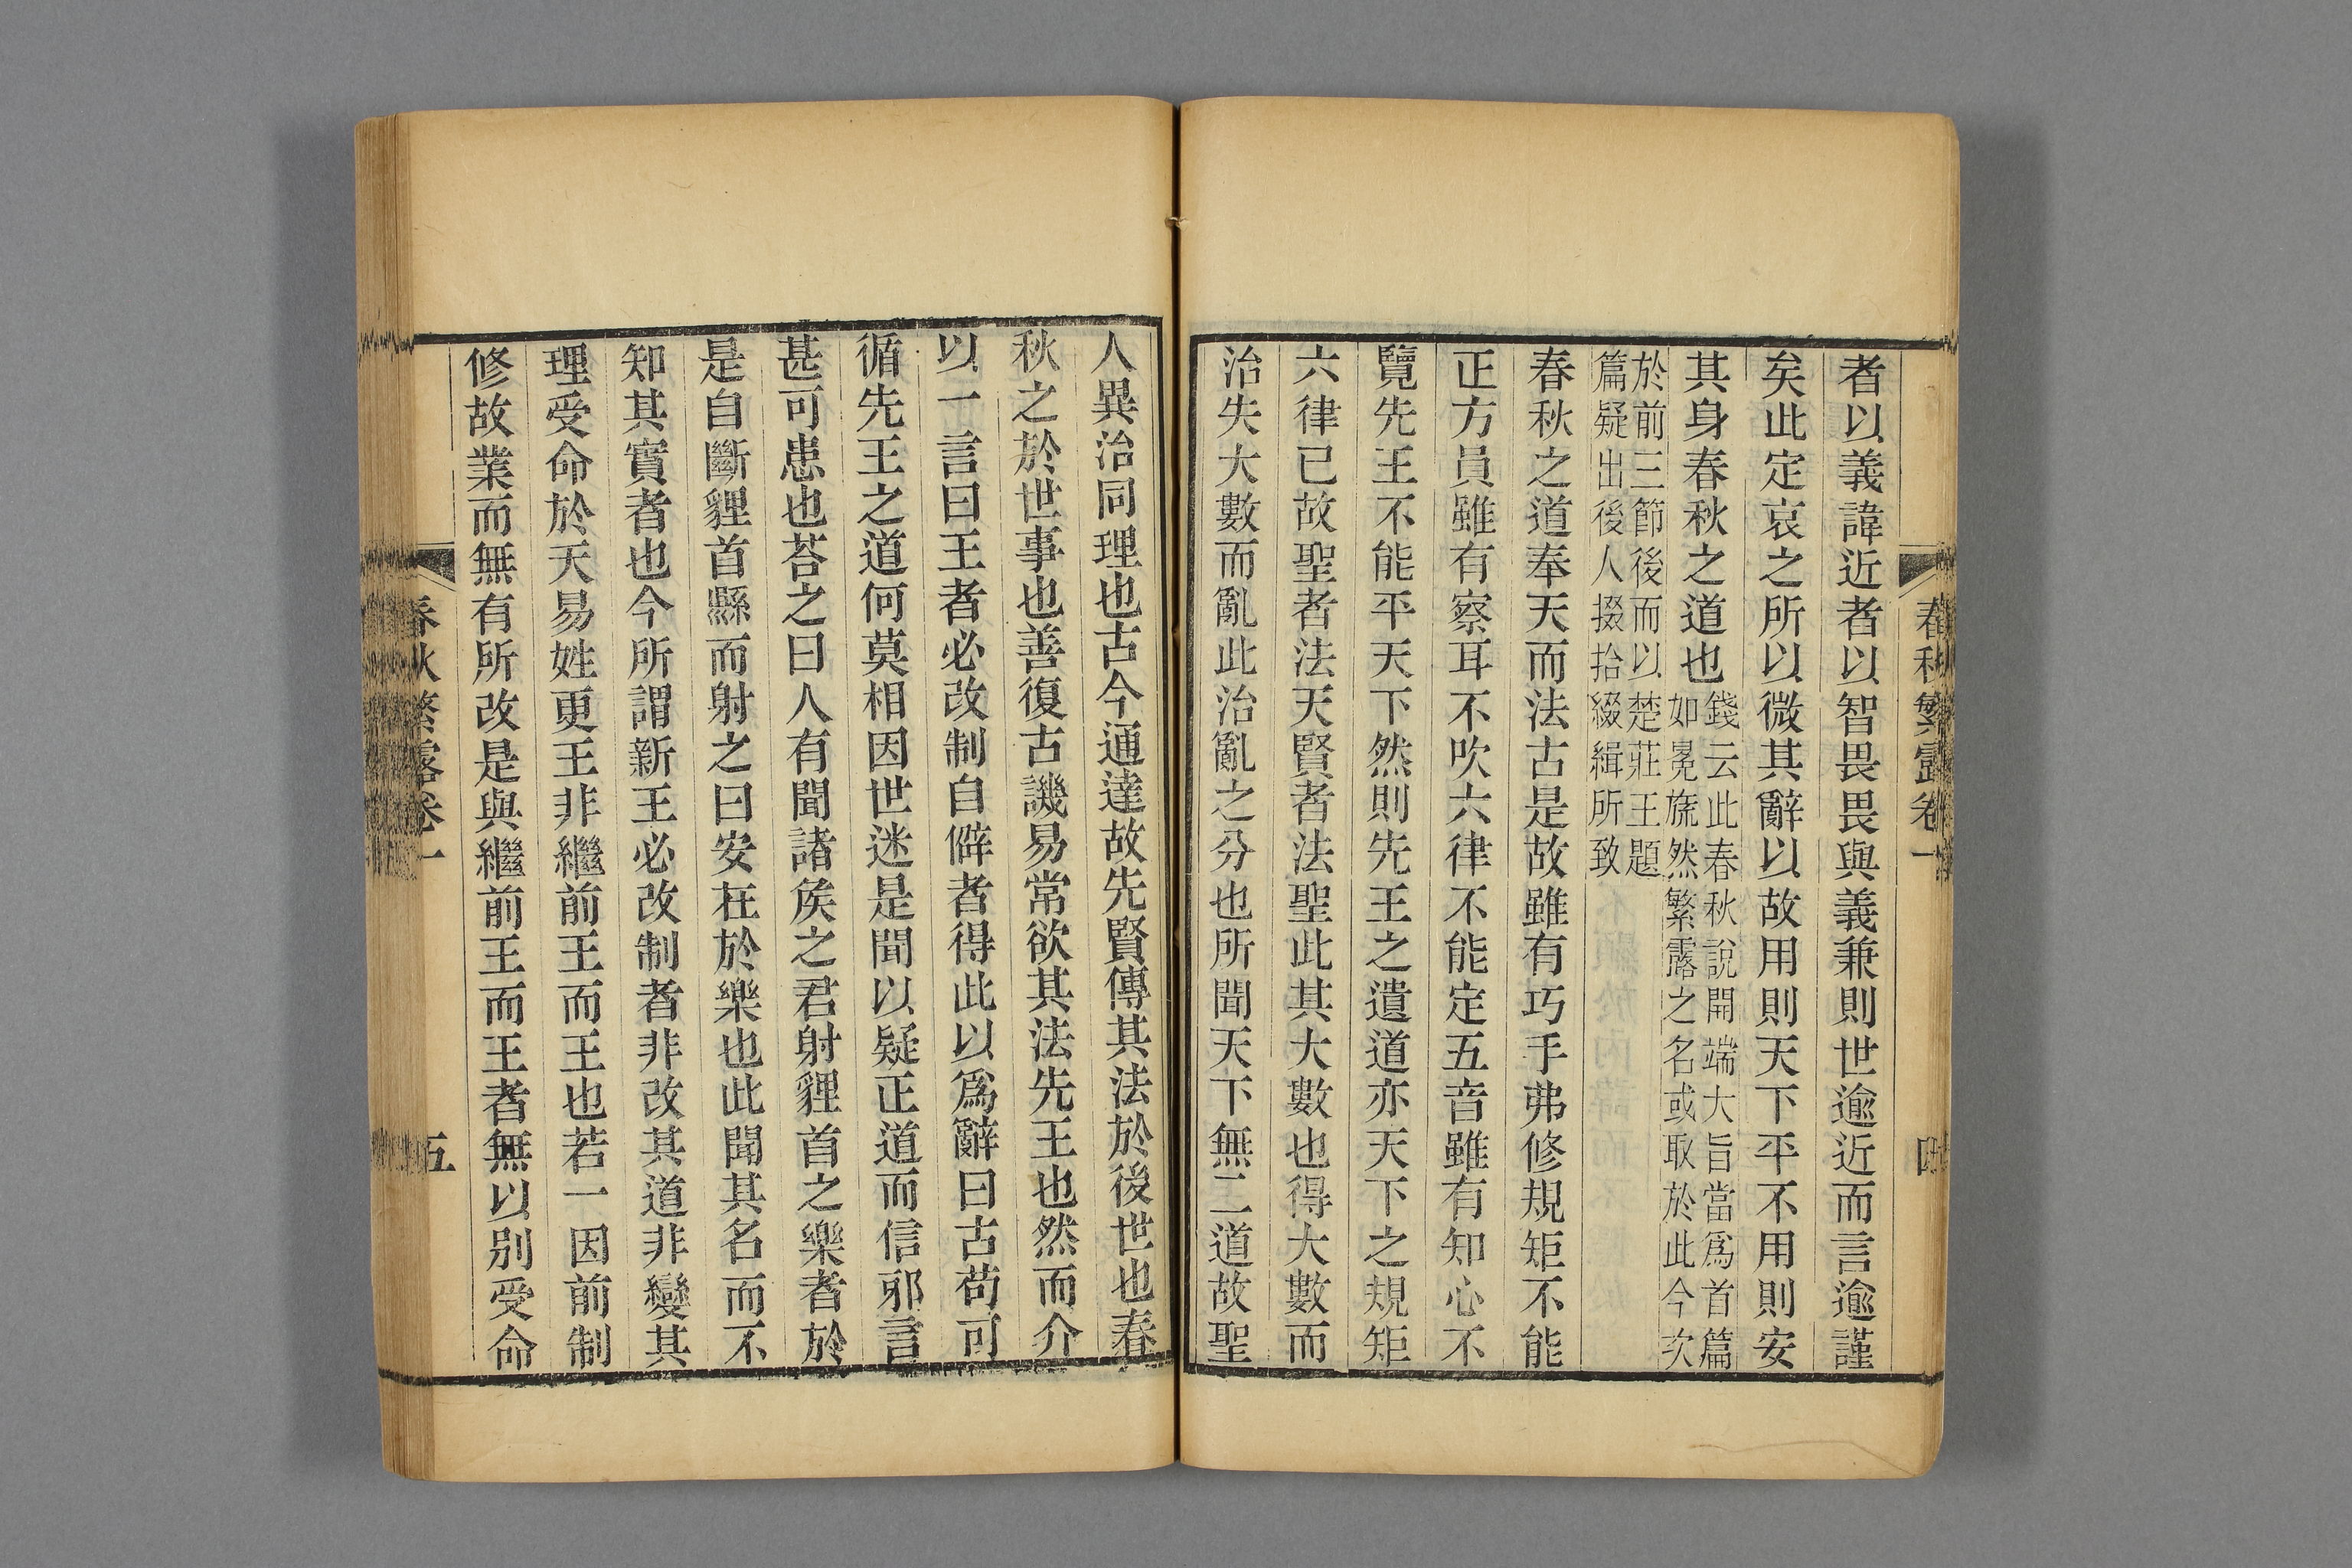 春秋繁露卷一 四
者以義諱近者以智畏畏與義兼則世逾近而言逾謹
矣此定哀之所以微其辭以故用則天下平不用則安
其身春秋之道也錢云此春秋說開端大旨當爲首篇
如冕旒然繁露之名或取於此今次
於前三節後而以楚莊王題
篇疑出後人掇拾綴緝所致
春秋之道奉天而法古是故雖有巧手弗修規矩不能
正方員雖有察耳不吹六律不能定五音雖有知心不
覽先王不能平天下然則先王之遺道亦天下之規矩
六律已故聖者法天賢者法聖此其大數也得大數而
治失大數而亂此治亂之分也所聞天下無二道故聖
人異治同理也古今通達故先賢傳其法於後世也春
秋之於世事也善復古譏易常欲其法先王也然而介
以一言曰王者必改制自僻者得此以爲辭曰古苟可
循先王之道何莫相因世迷是聞以疑正道而信邪言
甚可患也荅之曰人有聞諸矦之君射貍首之樂者於
是自斷貍首縣而射之曰安在於樂也此聞其名而不
知其實者也今所謂新王必改制者非改其道非變其
理受命於天易姓更王非繼前王而王也若一因前制
修故業而無有所改是與繼前王而王者無以別受命
春秋繁露卷一 五